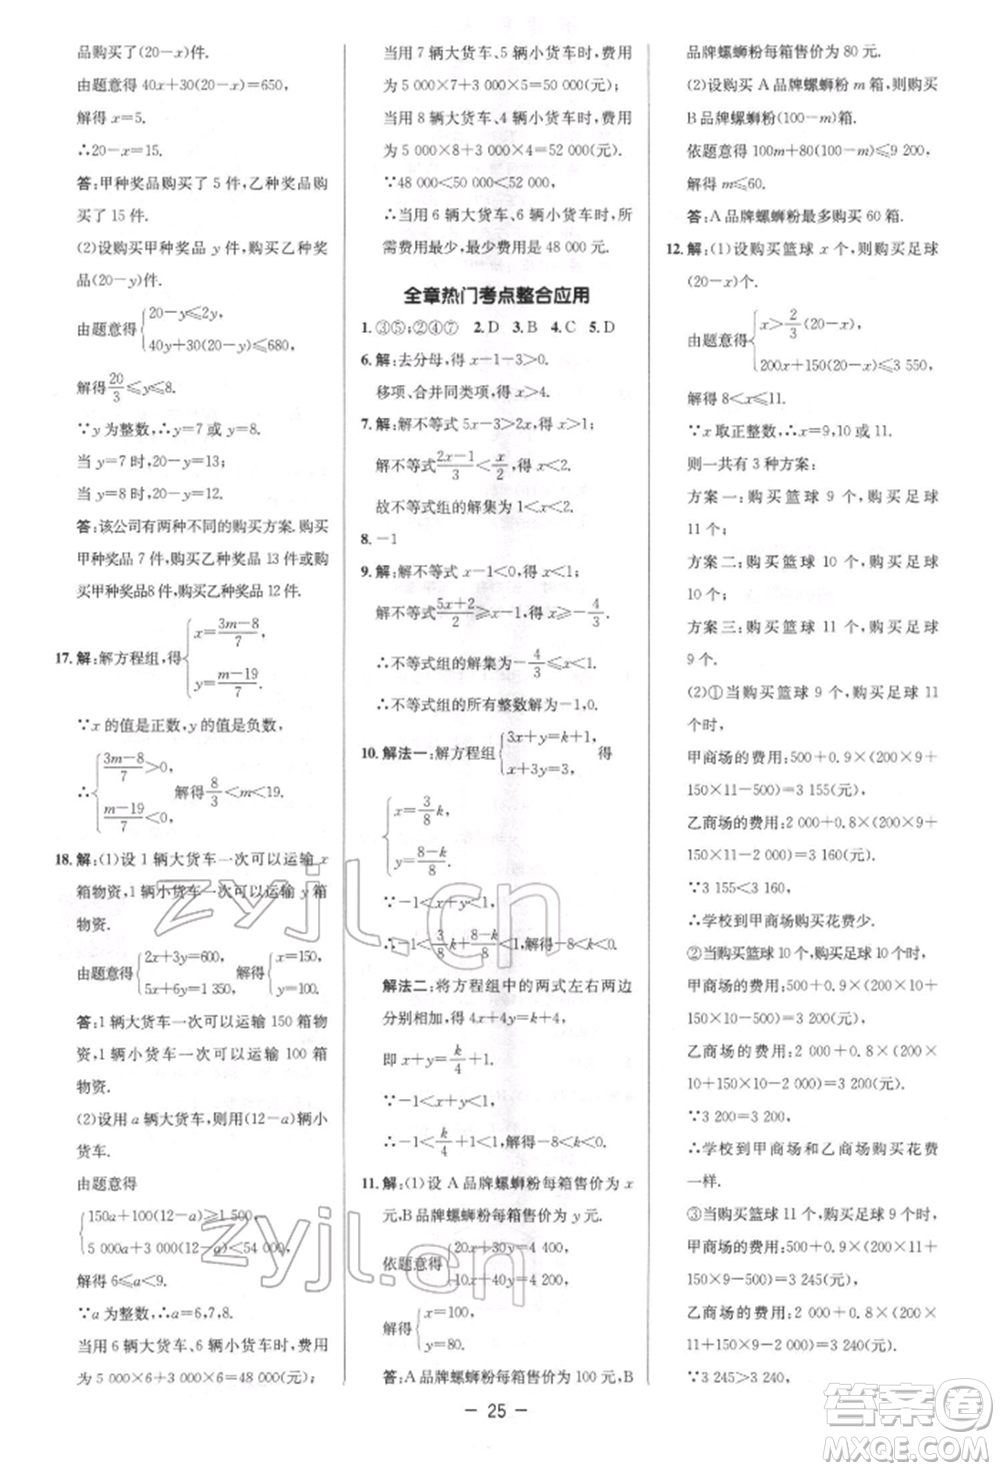 品牌购买了(20-x)件.
由题意得 40x+30(20-x)=650,
解得 x=5.
∴20-x=15.
答:甲种奖品购买了 5 件,乙种奖品购买了 15 件.
(2)设购买甲种奖品 y 件,则购买乙种奖品(20-y)件.
由题意得{20-y≤2y, 40y+30(20-y)≤680,
解得20/3≤y≤8.
∵y 为整数,∴y=7 或 y=8.
当 y=7 时,20-y=13;
当 y=8 时,20-y=12.
答:该公司有两种不同的购买方案.购买甲种奖品 7 件,购买乙种奖品 13 件或购买甲种奖品8 件,购买乙种奖品 12 件.
17.解:解方程组,得{x=(3m-8)/7, y=(m-19)/7.
∵x 的值是正数,y 的值是负数,
∴{(3m-8)/7>0, (m-19)/7<0, 解得8/3<m<19.
18.解:(1)设 1 辆大货车一次可以运输 x 箱物资,1 辆小货车一次可以运输 y 箱物资.
由题意得{2x+3y=600, 5x+6y=1 350, 解得{x=150, y=100.
答:1 辆大货车一次可以运输 150 箱物资,1 辆小货车一次可以运输 100 箱物资.
(2)设用 a 辆大货车,则用(12-a)辆小货车.
由题意得
{150a+100(12-a)≥1 500, 5 000a+3 000(12-a)<54 000,
解得 6≤a<9.
∵a 为整数,∴a=6,7,8.
当用 6 辆大货车、6 辆小货车时,费用为 5 000×6+3 000×6=48 000(元);
当用 7 辆大货车、5 辆小货车时,费用为 5 000×7+3 000×5=50 000(元);
当用 8 辆大货车、4 辆小货车时,费用为 5 000×8+3 000×4=52 000(元).
∵48 000<50 000<52 000,
∴当用 6 辆大货车、6 辆小货车时,所需费用最少,最少费用是 48 000 元.
全章热门考点整合应用
1.③⑤;②④⑦ 2.D 3.B 4.C 5.D
6.解:去分母,得 x-1-3>0.
移项、合并同类项,得 x>4.
7.解:解不等式 5x-3>2x,得 x>1;
解不等式(2x-1)/3<x/2,得 x<2.
故不等式组的解集为 1<x<2.
8.-1
9.解:解不等式 x-1<0,得 x<1;
解不等式(5x+2)/2≥x-1,得 x≥-4/3.
∴不等式组的解集为-4/3≤x<1.
∴不等式组的所有整数解为-1,0.
10.解法一:解方程组{3x+y=k+1, x+3y=3, 得
{x=3/8k, y=(8-k)/8.
∵-1<x+y<1,
∴-1<3/8k+(8-k)/8<1,解得-8<k<0.
解法二:将方程组中的两式左右两边分别相加,得 4x+4y=k+4,
即 x+y=k/4+1.
∵-1<x+y<1,
∴-1<k/4+1<1,解得-8<k<0.
11.解:(1)设 A 品牌螺蛳粉每箱售价为 x 元,B 品牌螺蛳粉每箱售价为 y 元.
依题意得{20x+30y=4 400, 10x+40y=4 200,
解得{x=100, y=80.
答:A 品牌螺蛳粉每箱售价为 100 元,B
品牌螺蛳粉每箱售价为 80 元.
(2)设购买 A 品牌螺蛳粉 m 箱,则购买 B 品牌螺蛳粉(100-m)箱.
依题意得 100m+80(100-m)≤9 200,
解得 m≤60.
答:A 品牌螺蛳粉最多购买 60 箱.
12.解:(1)设购买篮球 x 个,则购买足球(20-x)个.
由题意得{x>2/3(20-x), 200x+150(20-x)≤3 550,
解得 8<x≤11.
∵x 取正整数,∴x=9,10 或 11.
则一共有 3 种方案:
方案一:购买篮球 9 个,购买足球 11 个;
方案二:购买篮球 10 个,购买足球 10 个;
方案三:购买篮球 11 个,购买足球 9 个.
(2)①当购买篮球 9 个,购买足球 11 个时,
甲商场的费用:500+0.9×(200×9+150×11-500)=3 155(元),
乙商场的费用:2 000+0.8×(200×9+150×11-2 000)=3 160(元).
∵3 155<3 160,
∴学校到甲商场购买花费少.
②当购买篮球 10 个,购买足球 10 个时,
甲商场的费用:500+0.9×(200×10+150×10-500)=3 200(元),
乙商场的费用:2 000+0.8×(200×10+150×10-2 000)=3 200(元).
∵3 200=3 200,
∴学校到甲商场和乙商场购买花费一样.
③当购买篮球 11 个,购买足球 9 个时,
甲商场的费用:500+0.9×(200×11+150×9-500)=3 245(元),
乙商场的费用:2 000+0.8×(200×11+150×9-2 000)=3 240(元).
∵3 245>3 240,
- 25 -
zyjl.cn
zyjl.cn
答案圈
MXQE.COM